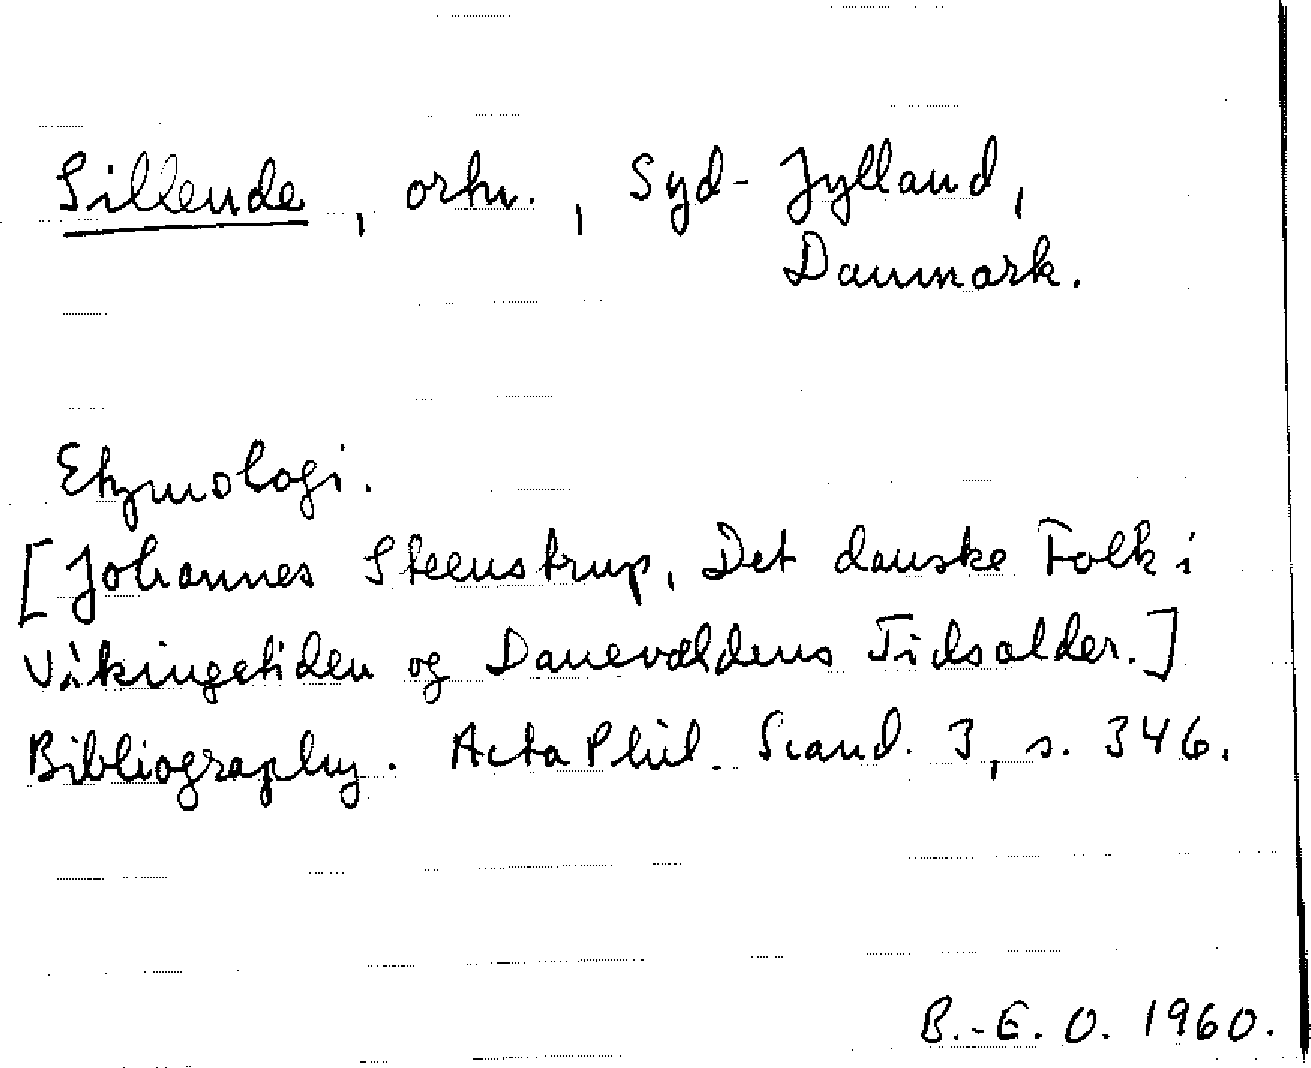 Sillende, ortn., Syd-Jylland,
Danmark.
Etymologi.
[Johannes Steenstrup, Det danske Folk i
Vikingetiden og Danevældens Tidsalder.]
Bibliography. Acta Phil. Scand. 3, s. 346.
B.-E. O. 1960.